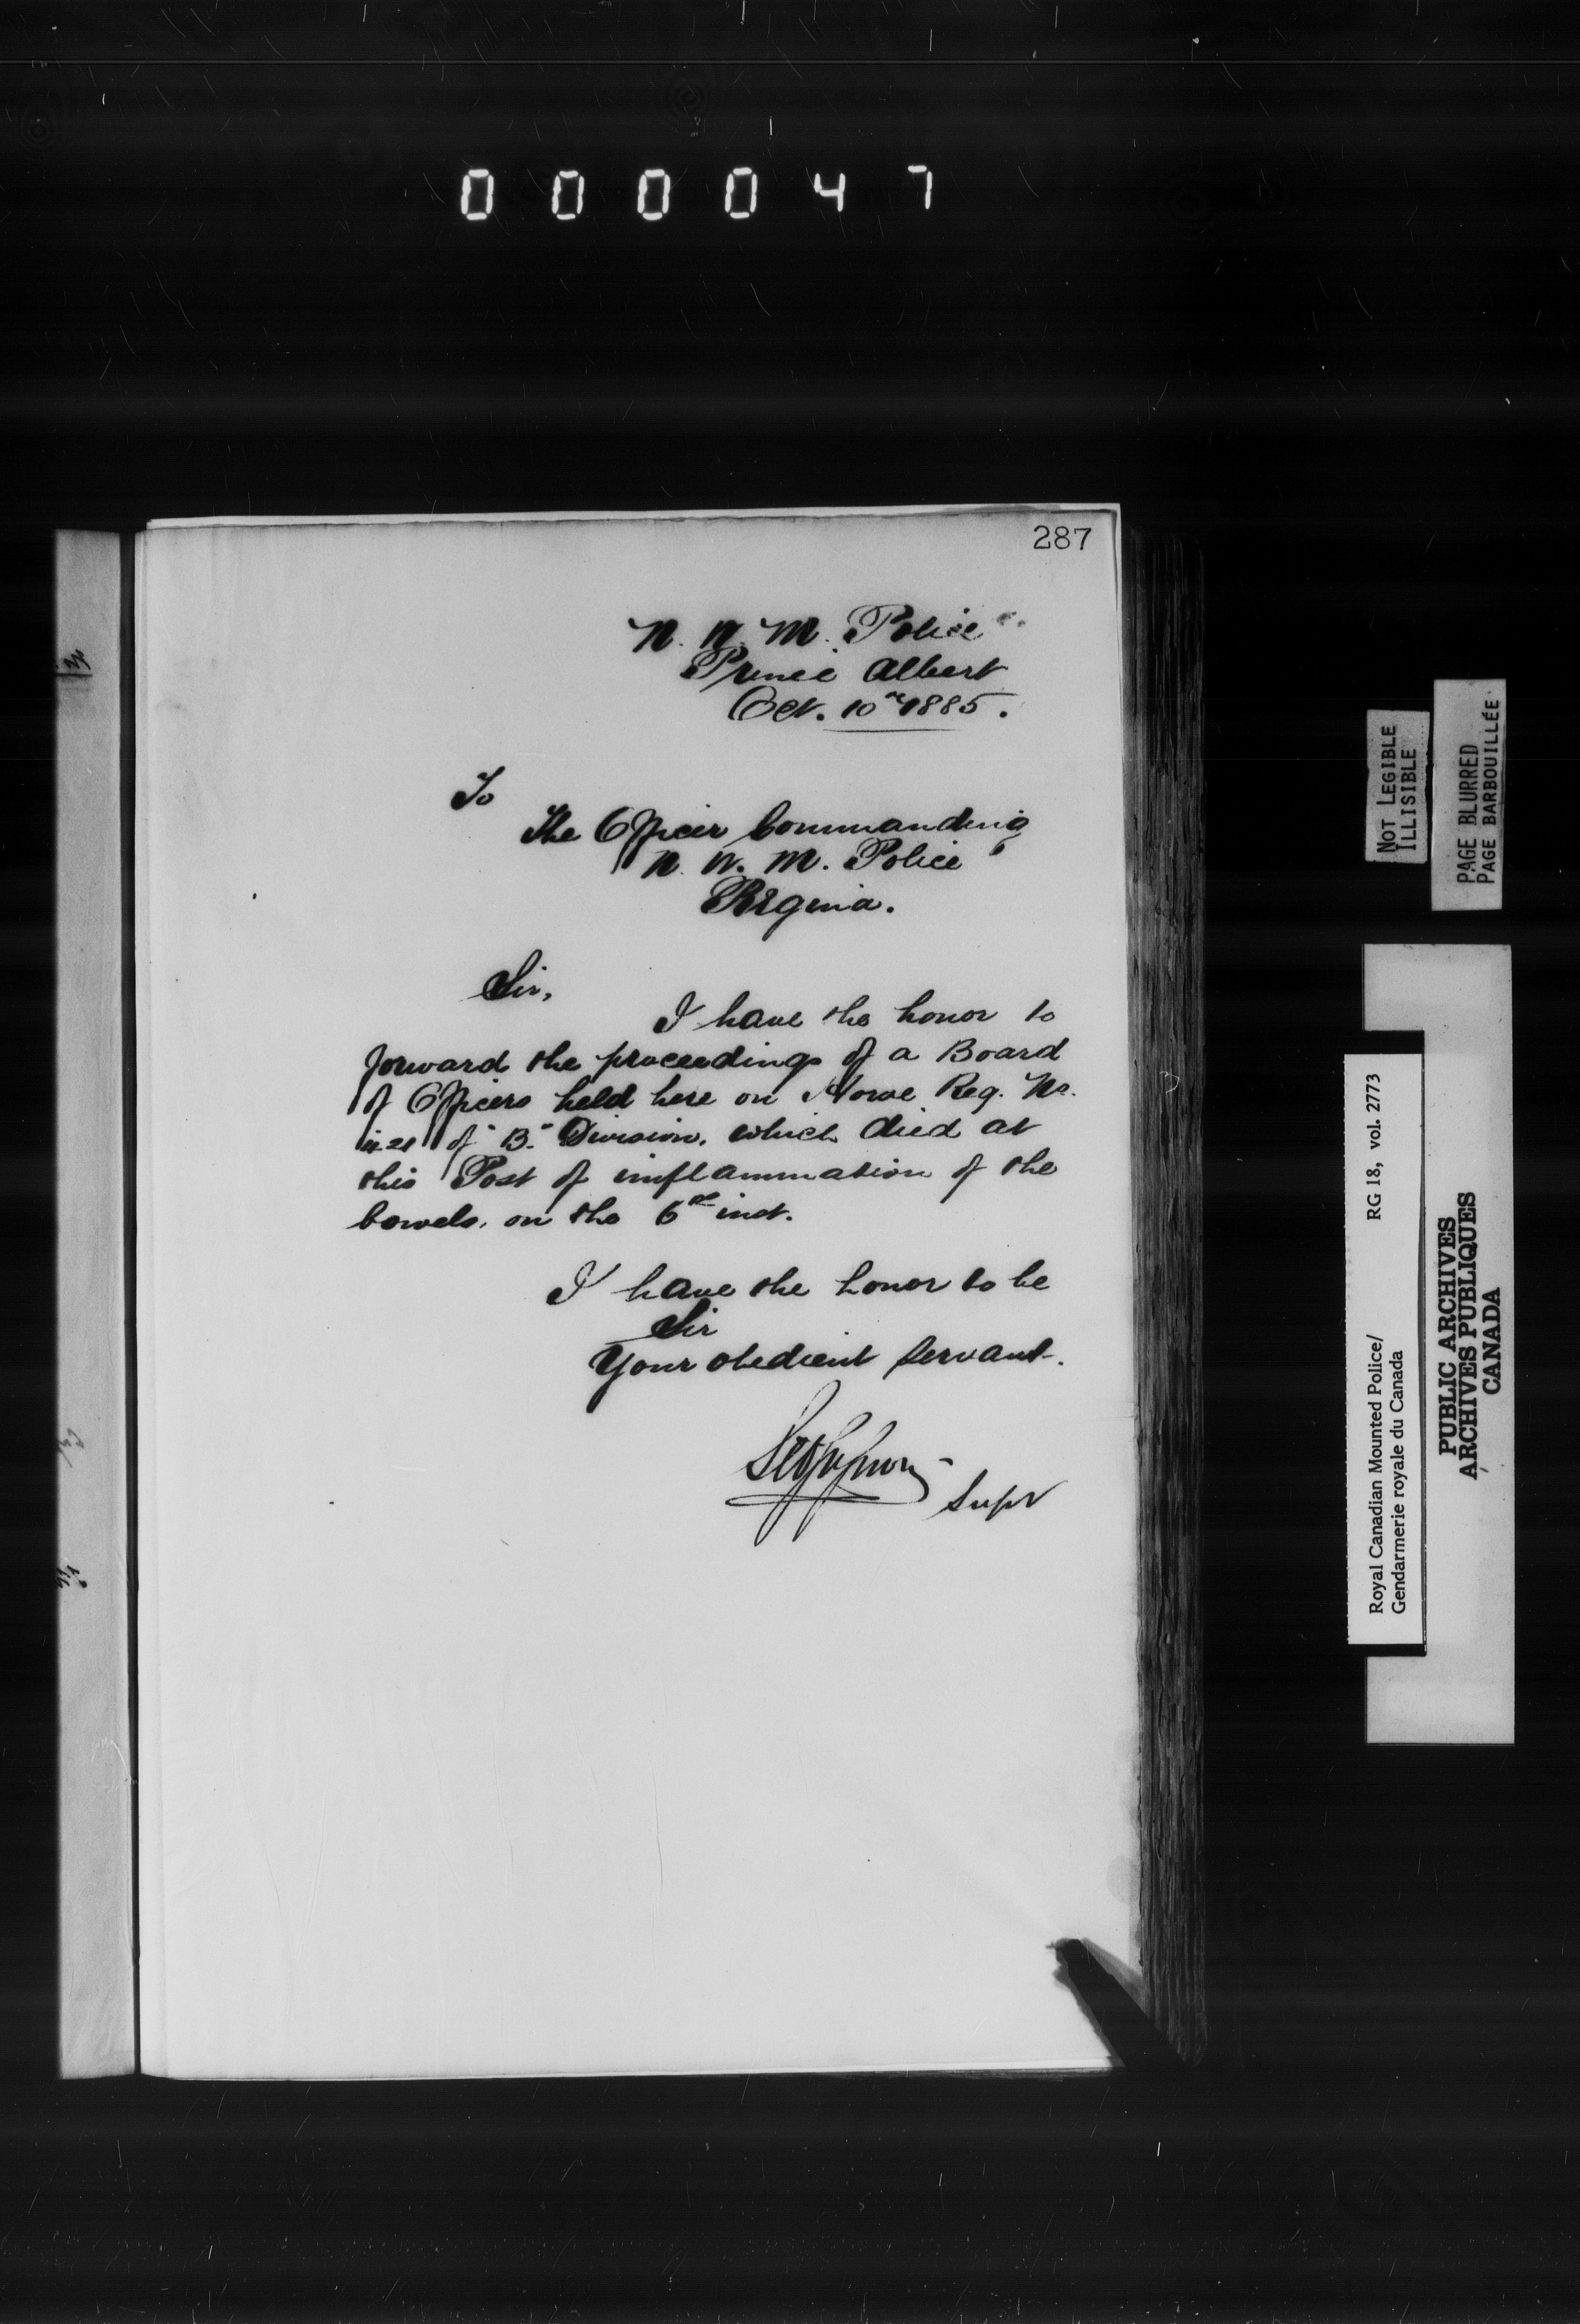 000047
287
N. W. M. Police
Prince Albert
Oct. 10th 1885.
To
The Officer Commanding
N. W. M. Police
Regina.
Sir,
I have the honor to
forward the proceedings of a Board
of Officers held here on Horse Reg. No.
of "B." Division, which died at
this Post of inflammation of the
bowels, on the 6th inst.
I have the honor to be
Sir
Your obedient servant.
Supt
NOT LEGIBLE
ILLISIBLE
PAGE BLURRED
PAGE BARBOUILLÉE
Royal Canadian Mounted Police/ RG 18, vol. 2773
Gendarmerie royale du Canada
PUBLIC ARCHIVES
ARCHIVES PUBLIQUES
CANADA